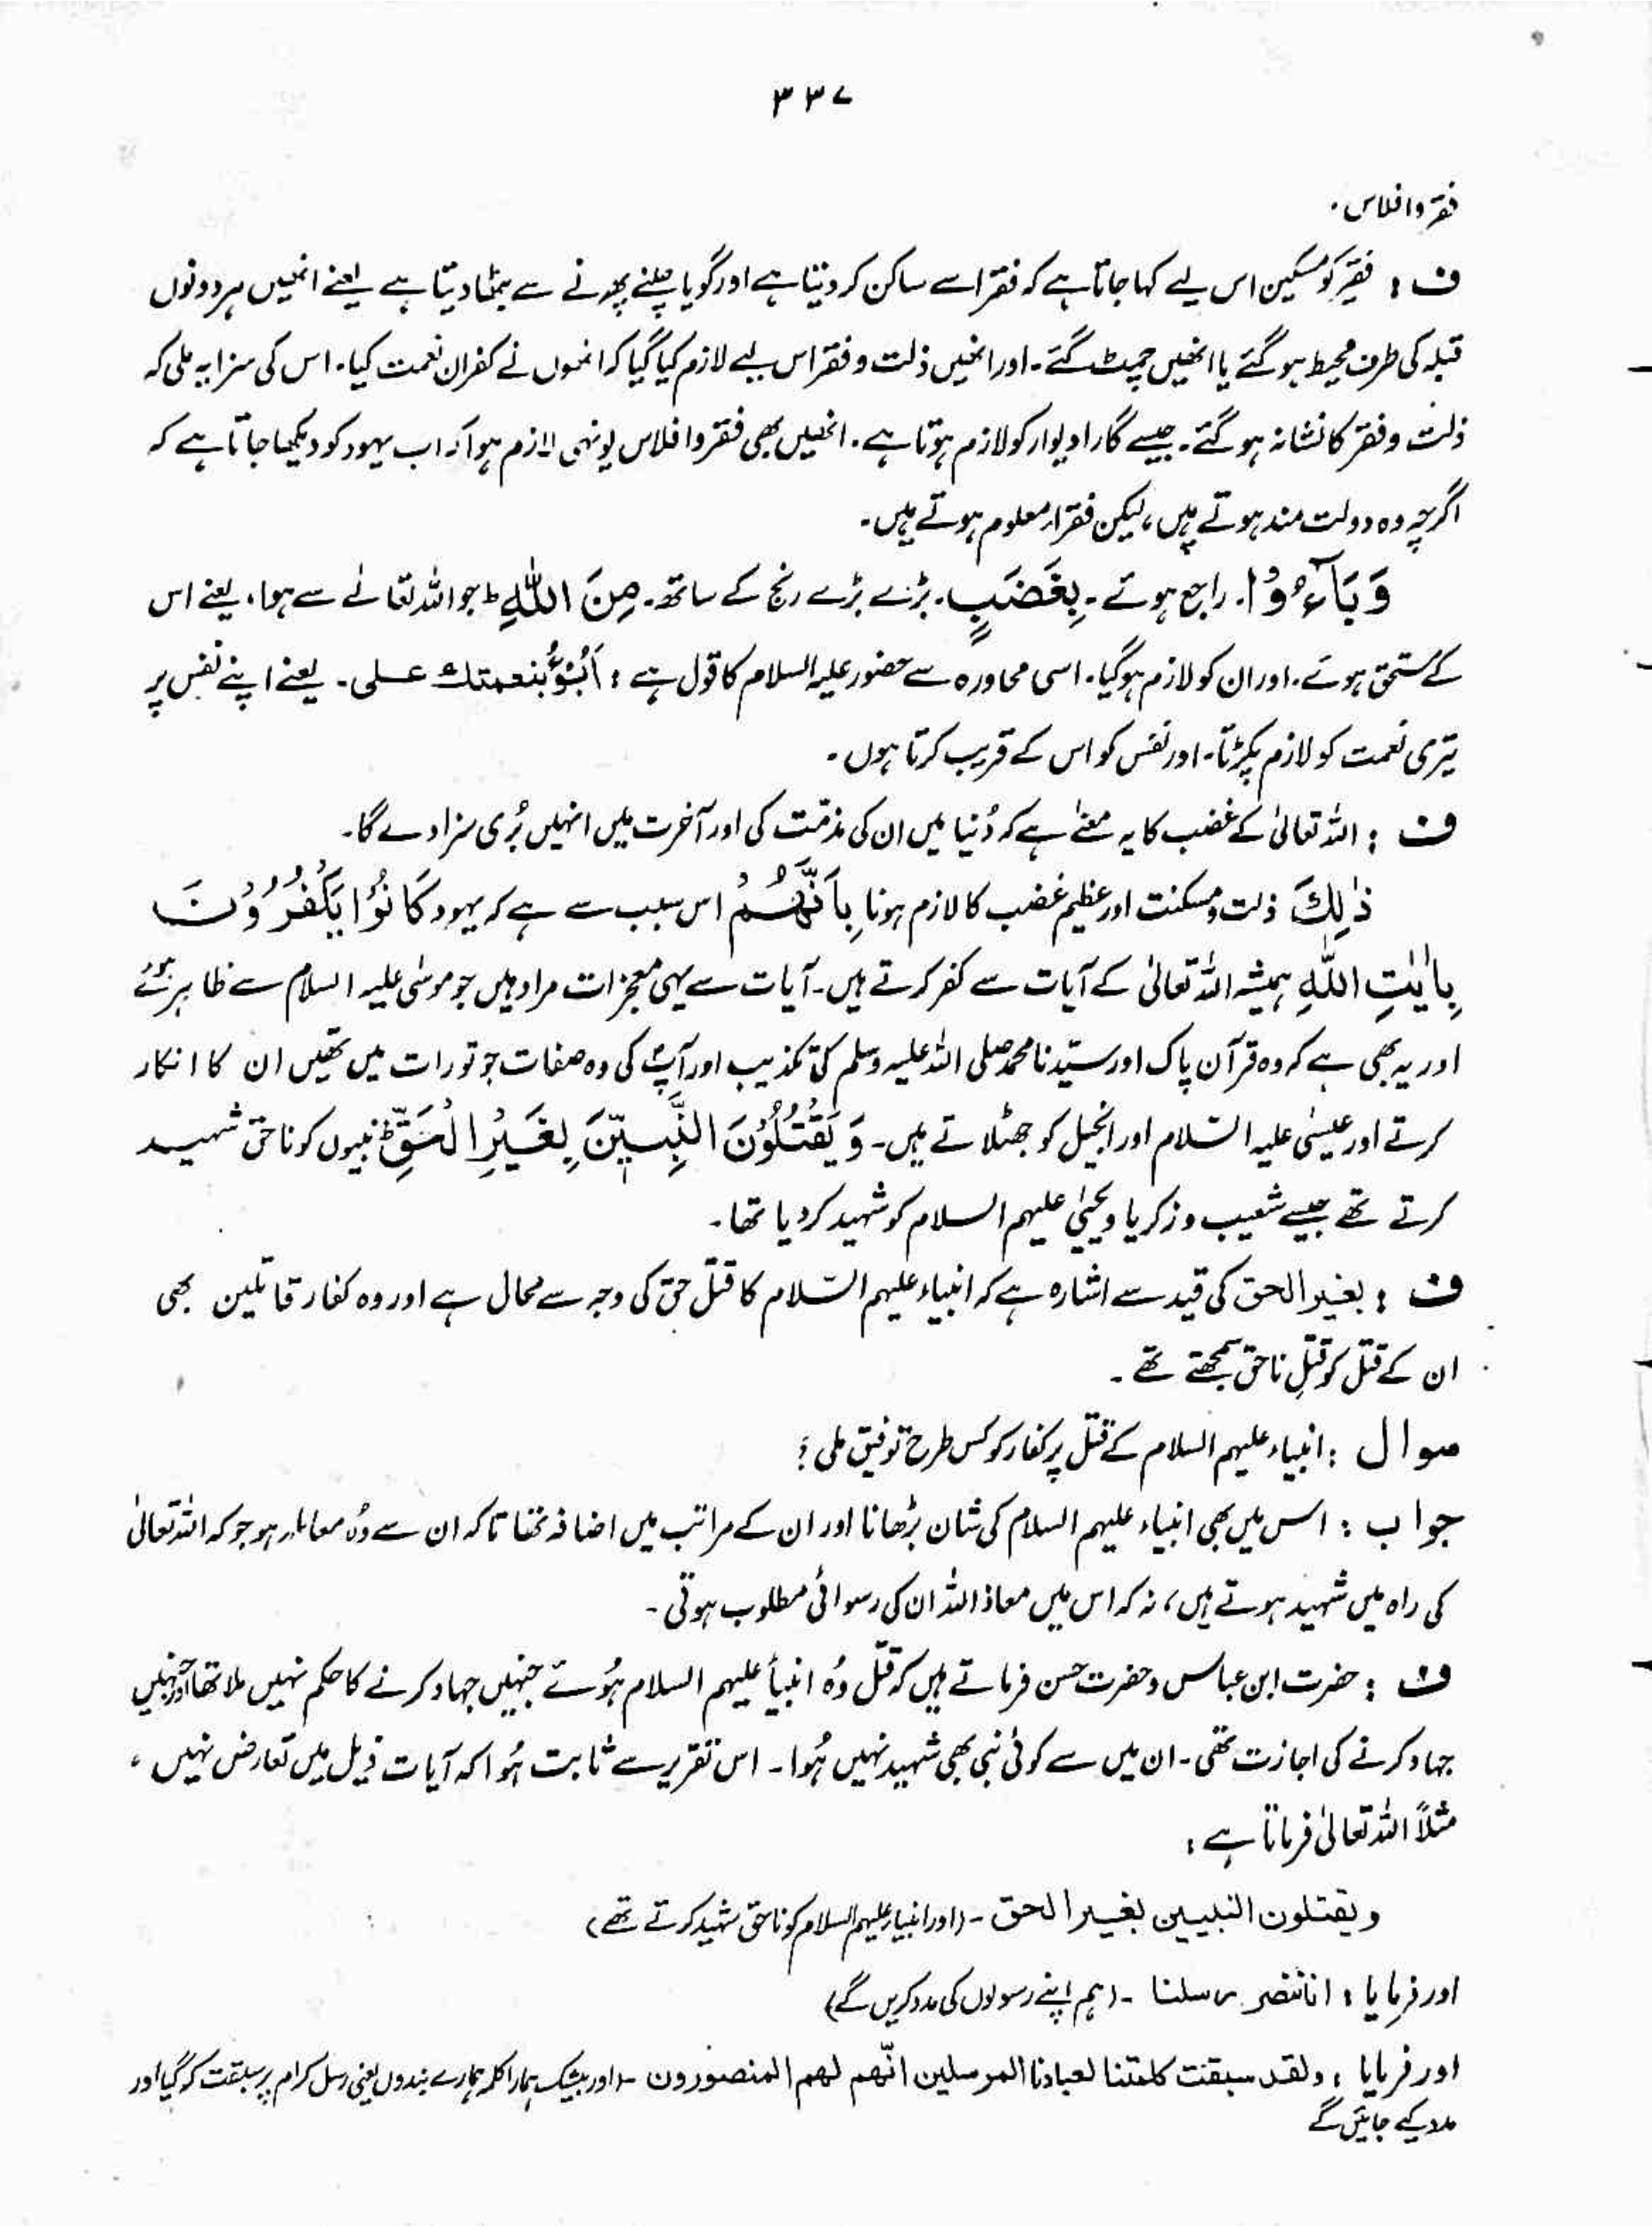 ۳۳۷
فقر وافلاس۔
ف : فقیر کو مسکین اس لیے کہا جاتا ہے کہ فقر اسے ساکن کر دیتا ہے اور گویا چلنے پھرنے سے بٹھا دیتا ہے یعنے انھیں ہر دونوں
قبلہ کی طرف محیط ہو گئے یا انھیں چمٹ گئے۔ اور انھیں ذلت و فقر اس لیے لازم کیا گیا کہ انھوں نے کفرانِ نعمت کیا۔ اس کی سزا یہ ملی کہ
ذلت و فقر کا نشانہ ہو گئے۔ جیسے گارا دیوار کو لازم ہوتا ہے۔ انھیں بھی فقر و افلاس یونہی لازم ہوا کہ اب یہود کو دیکھا جاتا ہے کہ
اگرچہ وہ دولت مند ہوتے ہیں، لیکن فقراء معلوم ہوتے ہیں۔
وَبَآءُوْا۔ راجع ہوئے۔ بِغَضَبٍ۔ بڑے بڑے رنج کے ساتھ۔ مِنَ اللّٰهِ ط جو اللہ تعالےٰ سے ہوا، یعنے اس
کے مستحق ہوئے۔ اور ان کو لازم ہوگیا۔ اسی محاورہ سے حضور علیہ السلام کا قول ہے : اَبُوْءُ بنعمتك علی۔ یعنے اپنے نفس پر
تیری نعمت کو لازم پکڑتا۔ اور نفس کو اس کے قریب کرتا ہوں۔
ف : اللہ تعالیٰ کے غضب کا یہ معنےٰ ہے کہ دُنیا میں ان کی مذمّت کی اور آخرت میں انہیں بُری سزا دے گا۔
ذٰلِكَ ذلت و مسکنت اور عظیم غضب کا لازم ہونا بِاَنَّهُمْ اس سبب سے ہے کہ یہود كَانُوْا يَكْفُرُوْنَ
بِاٰيٰتِ اللّٰهِ ہمیشہ اللہ تعالیٰ کے آیات سے کفر کرتے ہیں۔ آیات سے یہی معجزات مراد ہیں جو موسٰی علیہ السلام سے ظاہر ہوئے
اور یہ بھی ہے کہ وہ قرآن پاک اور سیّدنا محمد صلی اللہ علیہ وسلم کی تکذیب اور آپؐ کی وہ صفات جو تورات میں تھیں ان کا انکار
کرتے اور عیسٰی علیہ السّلام اور انجیل کو جھٹلاتے ہیں۔ وَ يَقْتُلُوْنَ النَّبِيّٖنَ بِغَيْرِ الْحَقِّ ط نبیوں کو ناحق شہید
کرتے تھے جیسے شعیب و زکریا و یحییٰ علیہم السلام کو شہید کر دیا تھا۔
ف : بغیر الحق کی قید سے اشارہ ہے کہ انبیاء علیہم السّلام کا قتل حق کی وجہ سے محال ہے اور وہ کفار قاتلین بھی
ان کے قتل کو قتلِ ناحق سمجھتے تھے۔
سوال : انبیاء علیہم السلام کے قتل پر کفار کو کس طرح توفیق ملی ؟
جواب : اس میں بھی انبیاء علیہم السلام کی شان بڑھانا اور ان کے مراتب میں اضافہ تھا تاکہ ان سے وُہ معاملہ ہو جو کہ اللہ تعالیٰ
کی راہ میں شہید ہوتے ہیں، نہ کہ اس میں معاذ اللہ ان کی رسوائی مطلوب ہوتی۔
ف : حضرت ابن عباس و حضرت حسن فرماتے ہیں کہ قتل وُہ انبیأ علیہم السلام ہُوئے جنہیں جہاد کرنے کا حکم نہیں ملا تھا اور جنہیں
جہاد کرنے کی اجازت تھی۔ ان میں سے کوئی نبی بھی شہید نہیں ہُوا۔ اس تقریر سے ثابت ہُوا کہ آیات ذیل میں تعارض نہیں،
مثلاً اللہ تعالیٰ فرماتا ہے :
و یقتلون النبیین بغیر الحق ۔ (اور انبیاء علیہم السلام کو ناحق شہید کرتے تھے)
اور فرمایا : انا ننصر رسلنا ۔ (ہم اپنے رسولوں کی مدد کریں گے)
اور فرمایا : ولقد سبقت کلمتنا لعبادنا المرسلین انّھم لھم المنصورون ۔ (اور بیشک ہمارا کلمہ ہمارے بندوں یعنی رسل کرام پر سبقت کر گیا اور
مدد کیے جائیں گے